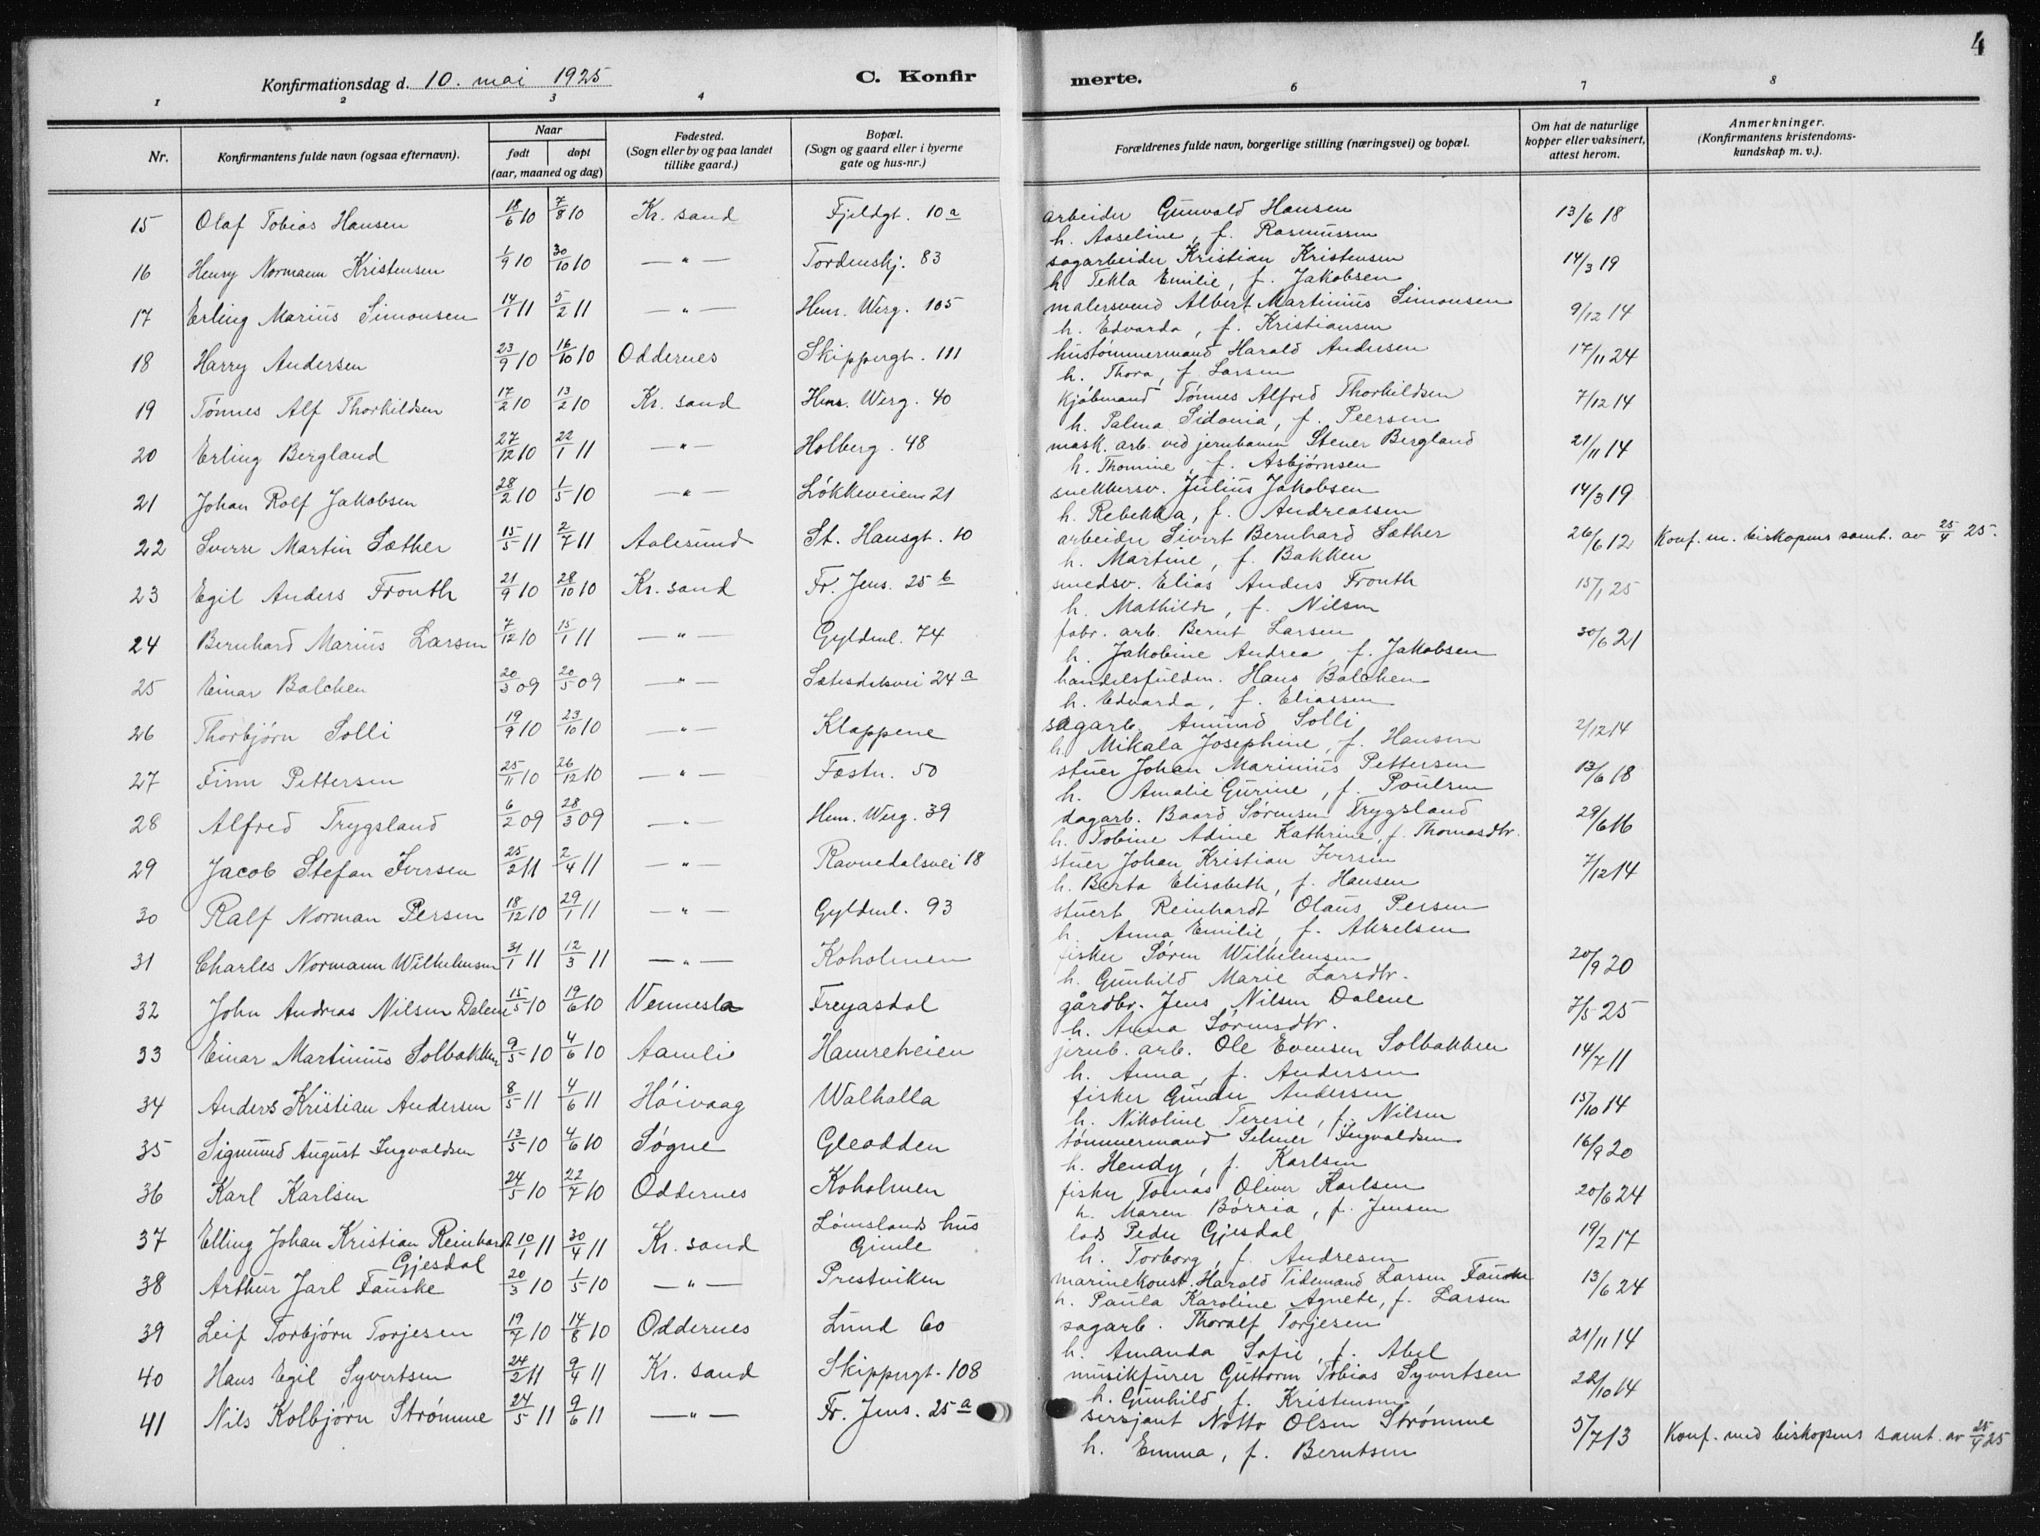 4
Konfirmationsdag d. 10. mai 1925 C. Konfirmerte.
1 2 3 4 6 7 8
Nr. Konfirmantens fulde navn (ogsaa efternavn). Naar født døpt (aar, maaned og dag) Fødested. (Sogn eller by og paa landet tillike gaard.) Bopæl. (Sogn og gaard eller i byerne gate og hus-nr.) Forældrenes fulde navn, borgerlige stilling (næringsvei) og bopæl. Om hat de naturlige kopper eller vaksinert, attest herom. Anmerkninger. (Konfirmantens kristendomskundskap m. v.).
15 Olaf Tobias Hansen 18/6 10 7/8 10 Kr. sand Fjeldgt. 10 a arbeider Gunvald Hansen 13/6 18
h. Aaseline, f. Rasmussen
16 Henry Normann Kristensen 1/9 10 30/10 10 —"— Tordenskj. 83 sagarbeider Kristian Kristensen 14/3 19
h. Tekla Emilie, f. Jakobsen
17 Erling Marius Simonsen 14/1 11 5/2 11 —"— Hen. Werg. 105 malersvend Albert Martinius Simonsen 9/12 14
h. Edvarda, f. Kristiansen
18 Harry Andersen 23/9 10 16/10 10 Oddernes Skippergt. 111 hustømmermand Harald Andersen 17/11 24
h. Thora, f. Larsen
19 Tønnes Alf Thorkildsen 17/2 10 13/2 10 Kr. sand Hen. Werg. 40 kjøbmand Tønnes Alfred Thorkildsen 7/12 14
h. Palma Sidonia, f. Peersen
20 Erling Bergland 27/12 10 22/1 11 —"— Holberg. 48 mask. arb. ved jernbanen Stener Bergland 21/11 14
h. Thomine, f. Asbjørnsen
21 Johan Rolf Jakobsen 28/2 10 1/5 10 —"— Løkkeveien 21 snekkersv. Julius Jakobsen 14/3 19
h. Rebekka, f. Andreassen
22 Sverre Martin Sæther 15/5 11 2/7 11 Aalesund St. Hansgt. 10 arbeider Sivert Bernhard Sæther 26/6 12 Konf. m. biskopens samt. av 25/4 25.
h. Martine, f. Bakken
23 Egil Anders Fronth 21/9 10 28/10 10 Kr. sand Fr. Jens. 25 b smedsv. Elias Anders Fronth 15/1 25
h. Mathilde, f. Nilsen
24 Bernhard Marius Larsen 7/12 10 15/1 11 —"— Gyldenl. 74 fabr. arb. Bernt Larsen 30/6 21
h. Jakobine Andrea, f. Jakobsen
25 Einar Balchen 20/3 09 20/5 09 —"— Sætesdalsvei 24 a handelsfuldm. Hans Balchen
h. Edvarda, f. Eliassen
26 Thorbjørn Solli 19/9 10 23/10 10 —"— Klappene sagarb. Amund Solli 2/12 14
h. Mikala Josephine, f. Hansen
27 Finn Pettersen 25/11 10 26/12 10 —"— Fæstn. 50 stuer Johan Marinius Pettersen 13/6 18
h. Amalie Gurine, f. Poulsen
28 Alfred Trygsland 6/2 09 28/3 09 —"— Hen. Werg. 39 dagarb. Baard Sørensen Trygsland 29/6 16
h. Tobine Adine Kathrine, f. Thomasdtr.
29 Jacob Stefan Iversen 25/2 11 2/4 11 —"— Ravnedalsvei 18 stuer Johan Kristian Iversen 7/12 14
h. Berta Elisabeth, f. Hansen
30 Ralf Norman Persen 18/12 10 29/1 11 —"— Gyldenl. 93 stuert Reinhardt Olaus Persen
h. Anna Emilie, f. Akselsen
31 Charles Normann Wilhelmsen 31/1 11 12/3 11 —"— Koholmen fisker Søren Wilhelmsen 20/9 20
h. Gunhild Marie Larsdtr.
32 John Andreas Nilsen Dalene 15/5 10 19/6 10 Vennesla Freyasdal gårdbr. Jens Nilsen Dalene 7/5 25
h. Anna Sørensdtr.
33 Einar Martinius Solbakken 9/5 10 4/6 10 Aamli Hamreheien jernb. arb. Ole Evensen Solbakken 14/7 11
h. Anna, f. Andersen
34 Anders Kristian Andersen 8/5 11 4/6 11 Høivaag Walhalla fisker Gunder Andersen 15/10 14
h. Nikoline Teresie, f. Nilsen
35 Sigmund August Ingvaldsen 13/5 10 4/6 10 Søgne Gleodden tømmermand Selmer Ingvaldsen 16/9 20
h. Hendy, f. Karlsen
36 Karl Karlsen 24/5 10 22/7 10 Oddernes Koholmen fisker Tomas Oliver Karlsen 20/6 24
h. Maren Børria, f. Jensen
37 Elling Johan Kristian Reinhardt Gjesdal 10/1 11 30/4 11 Kr. sand Lømslands hus Gimle lods Peder Gjesdal 19/2 17
h. Torborg, f. Andresen
38 Arthur Jarl Fauske 20/3 10 1/5 10 —"— Prestviken marinekonst. Harald Tidemand Larsen Fauske 13/6 24
h. Paula Karoline Agnete, f. Larsen
39 Leif Torbjørn Torjesen 19/7 10 14/8 10 Oddernes Lund 60 sagarb. Thoralf Torjesen 21/11 14
h. Amanda Sofie, f. Abel
40 Hans Egil Syvertsen 24/2 11 9/4 11 Kr. sand Skippergt. 108 musikfurer Guttorm Tobias Syvertsen 22/10 14
h. Gunhild f. Kristensen
41 Nils Kolbjørn Strømme 24/5 11 9/6 11 —"— Fr. Jens. 25 a sersjant Notto Olsen Strømme 5/7 13 Konf. med biskopens samt. av 25/4 25
h. Emma, f. Berntsen